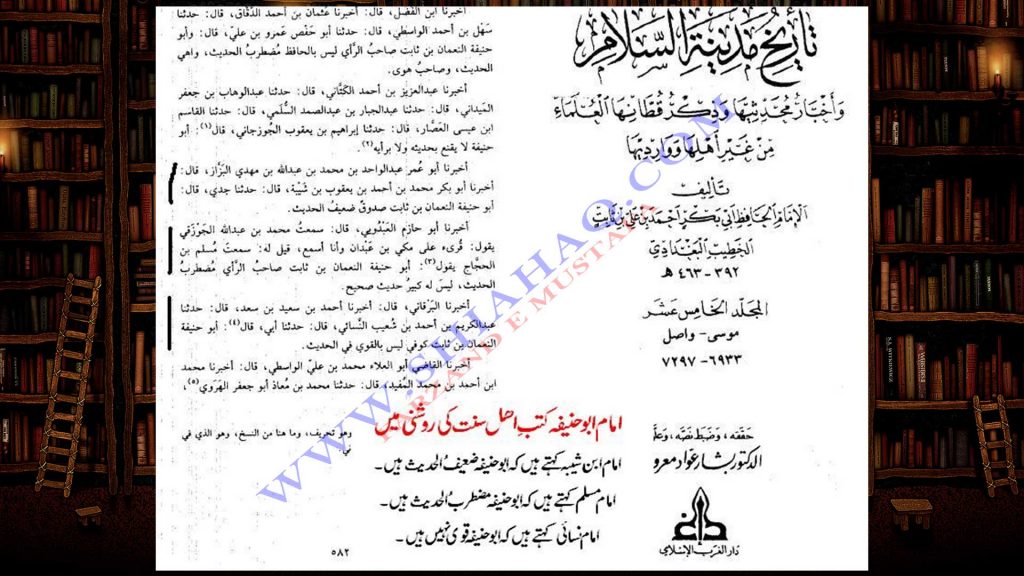 تأريخ مدينة السلام
وأخبار محدثيها وذكر قطانها العلماء
من غير أهلها ووارديها
تأليف
الإمام الحافظ أبي بكر أحمد بن علي بن ثابت
الخطيب البغدادي
٣٩٢ - ٤٦٣ هـ
المجلد الخامس عشر
موسى - واصل
٦٩٣٣ - ٧٢٩٧
حققه، وضبط نصه، وعلق
الدكتور بشار عواد معروف
دار الغرب الإسلامي
أخبرنا ابن الفضل، قال: أخبرنا عثمان بن أحمد الدقاق، قال: حدثنا
سهل بن أحمد الواسطي، قال: حدثنا أبو حفص عمرو بن علي، قال: وأبو
حنيفة النعمان بن ثابت صاحب الرأي ليس بالحافظ مضطرب الحديث، واهي
الحديث، وصاحب هوى.
أخبرنا عبدالعزيز بن أحمد الكتاني، قال: حدثنا عبدالوهاب بن جعفر
الميداني، قال: حدثنا عبدالجبار بن عبدالصمد السلمي، قال: حدثنا القاسم
ابن عيسى العصار، قال: حدثنا إبراهيم بن يعقوب الجوزجاني، قال(١): أبو
حنيفة لا يقنع بحديثه ولا برأيه(٢).
أخبرنا أبو عمر عبدالواحد بن محمد بن عبدالله بن مهدي البزاز، قال:
أخبرنا أبو بكر محمد بن أحمد بن يعقوب بن شيبة، قال: حدثنا جدي، قال:
أبو حنيفة النعمان بن ثابت صدوق ضعيف الحديث.
أخبرنا أبو حازم العبدويي، قال: سمعت محمد بن عبدالله الجوزقي
يقول: قرىء على مكي بن عبدان وأنا أسمع، قيل له: سمعت مسلم بن
الحجاج يقول(٣): أبو حنيفة النعمان بن ثابت صاحب الرأي مضطرب
الحديث، ليس له كبير حديث صحيح.
أخبرنا البرقاني، قال: أخبرنا أحمد بن سعيد بن سعد، قال: حدثنا
عبدالكريم بن أحمد بن شعيب النسائي، قال: حدثنا أبي، قال(٤): أبو حنيفة
النعمان بن ثابت كوفي ليس بالقوي في الحديث.
أخبرنا القاضي أبو العلاء محمد بن علي الواسطي، قال: أخبرنا محمد
ابن أحمد بن محمد المفيد، قال: حدثنا محمد بن معاذ أبو جعفر الهروي(٥)،
وهو تحريف، وما هنا من النسخ، وهو الذي في
امام ابو حنیفہ کتب اصل سنت کی روشنی میں
امام ابن شیبہ کہتے ہیں کہ ابو حنیفہ ضعیف الحدیث ہیں۔
امام مسلم کہتے ہیں کہ ابو حنیفہ مضطرب الحدیث ہیں۔
امام نسائی کہتے ہیں کہ ابو حنیفہ قوی نہیں ہیں۔
٥٨٢
WWW.SHIAHAQ.COM
FARZAND E MUSTAFA